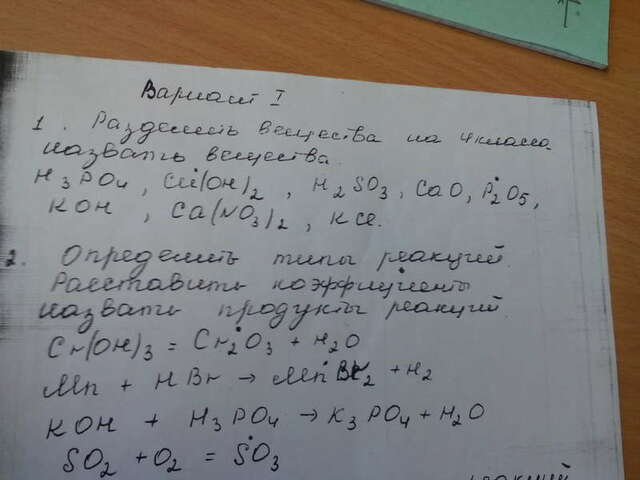 Вариант I
1. Разделить вещества на 4 класса.
назвать вещества.
H3PO4, Cu(OH)2, H2SO3, CaO, P2O5,
KOH, Ca(NO3)2, KCl.
2. Определить типы реакций.
Расставить коэффициенты
назвать продукты реакций.
Cr(OH)3 = Cr2O3 + H2O
Mn + HBr → MnBr2 + H2
KOH + H3PO4 → K3PO4 + H2O
SO2 + O2 = SO3